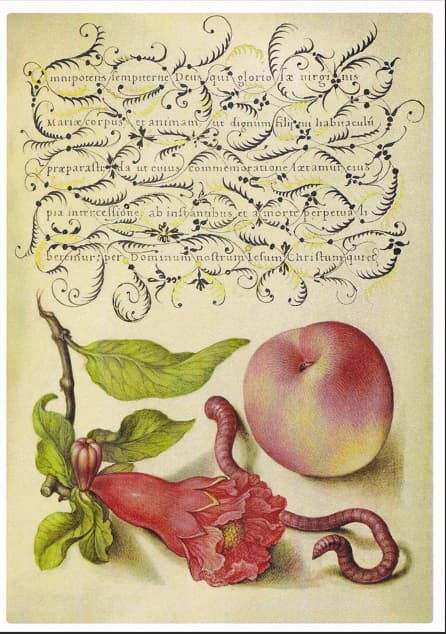 Omnipotens sempiterne Deus qui gloriosæ virginis
Mariæ corpus et animam ut dignum filij tui habitaculū
præparasti da ut cuius commemoratione lætamur eius
pia intercessione ab instantibus et a morte perpetua li
beremur: per Dominum nostrum Iesum Christum qui et